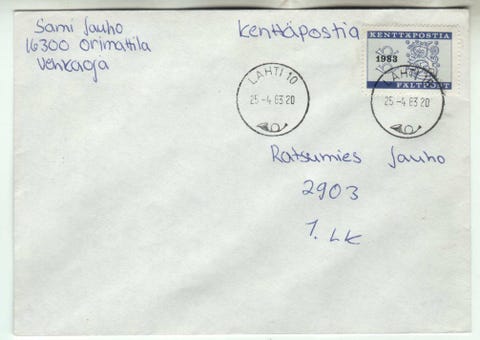 Sami Jauho
16300 Orimattila
Venkaoja
Kenttäpostia
KENTTÄPOSTIA
1983
FÄLTPOST
LAHTI 10
25 -4 83 20
LAHTI 10
25 -4 83 20
Ratsumies Jauho
2903
1. LK